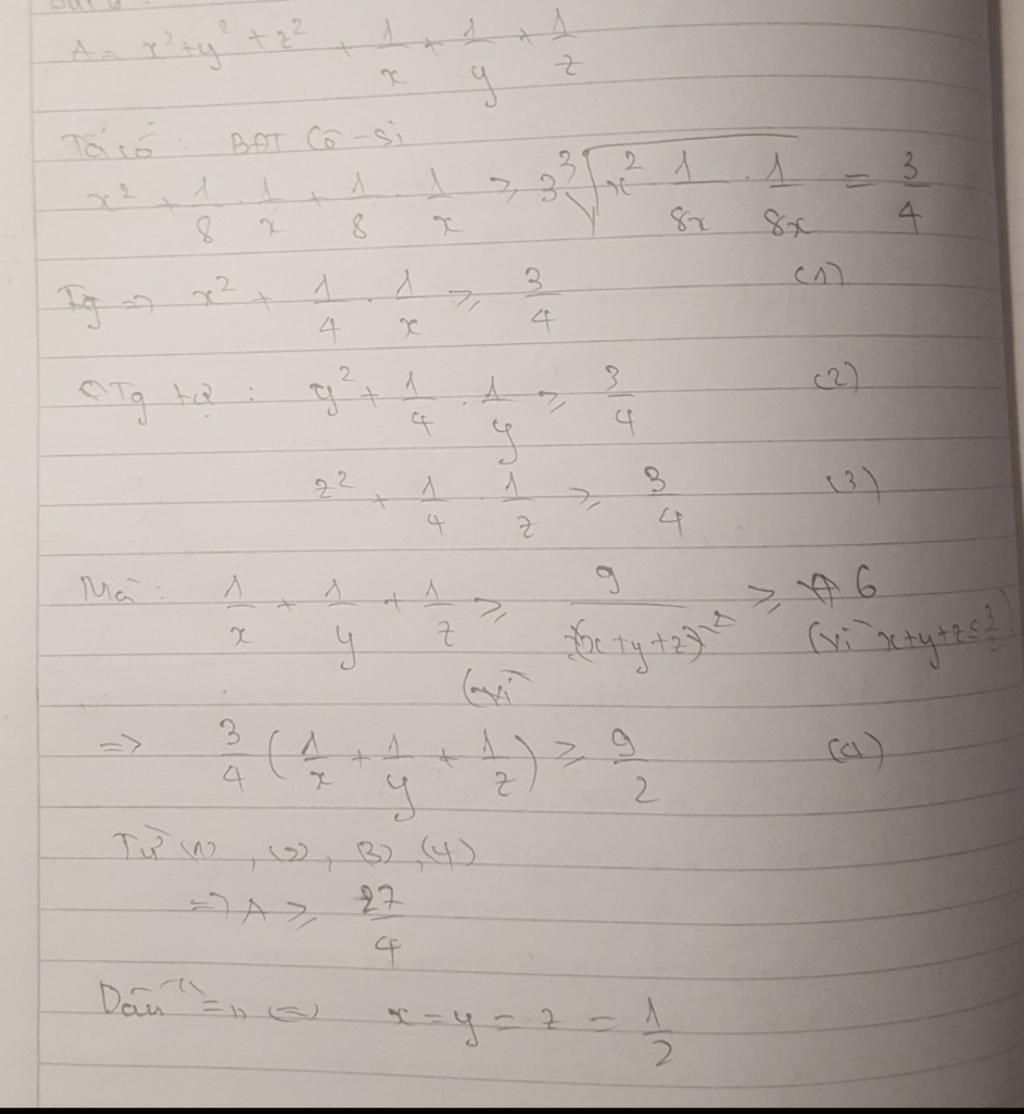 A = x² + y² + z² + 1/x + 1/y + 1/z
Ta có : BĐT Cô - si
x² + 1/8 . 1/x + 1/8 . 1/x ≥ 3 ∛(x² 1/8x . 1/8x) = 3/4
⇒ x² + 1/4 . 1/x ≥ 3/4 (1)
Tg tự : y² + 1/4 . 1/y ≥ 3/4 (2)
z² + 1/4 . 1/z ≥ 3/4 (3)
Mà : 1/x + 1/y + 1/z ≥ 9/(x + y + z) ≥ 6 (vì x + y + z ≤ 3/2)
(vì
=> 3/4 (1/x + 1/y + 1/z) ≥ 9/2 (4)
Từ (1) , (2) , (3) , (4)
=> A ≥ 27/4
Dấu "=" <=> x = y = z = 1/2